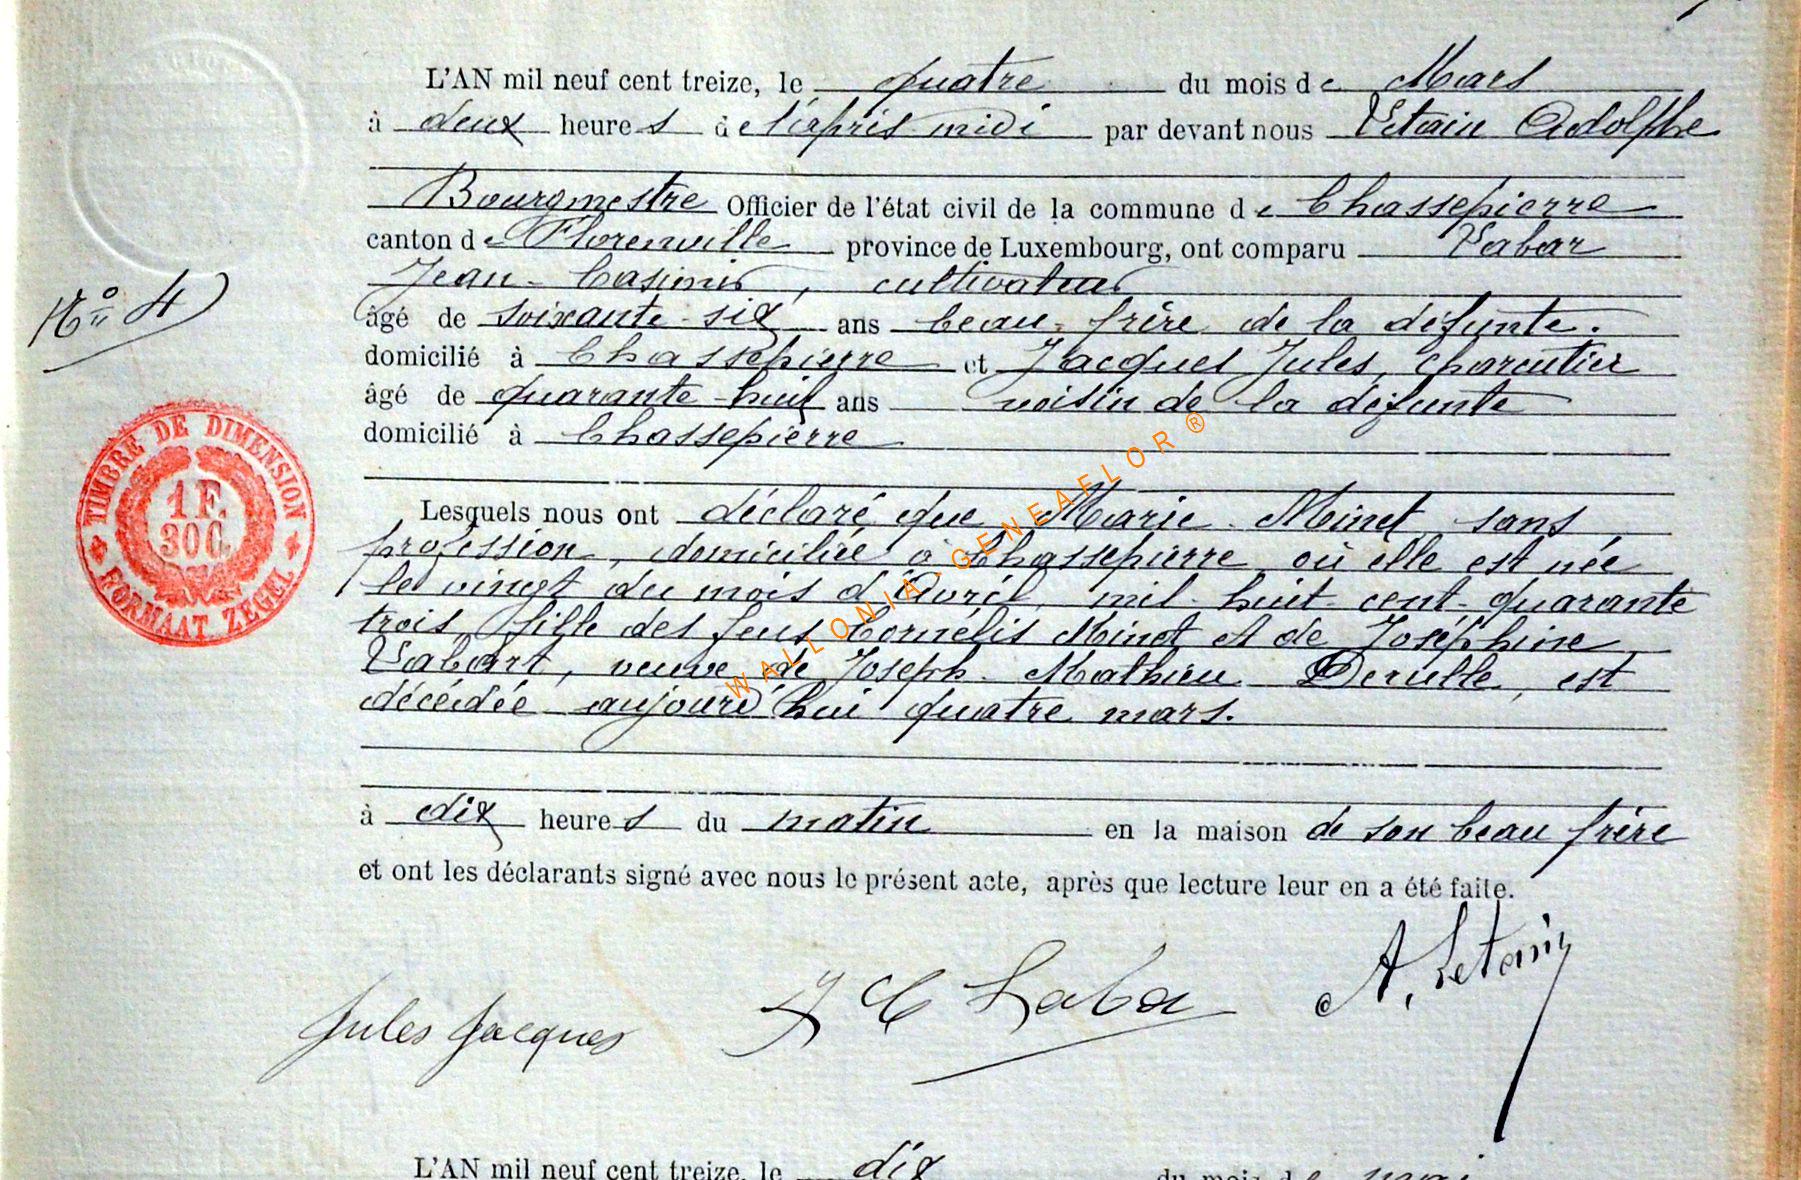 L'AN mil neuf cent treize, le quatre du mois de Mars
à deux heures de l'après midi par devant nous Létain Adolphe
Bourgmestre Officier de l'état civil de la commune de Chassepierre
canton de Florenville province de Luxembourg, ont comparu Labar
Jean-Casimir, cultivateur
N° 4
âgé de soixante-six ans beau-frère de la défunte.
domicilié à Chassepierre et Jacques Jules, charcutier
âgé de quarante-huit ans voisin de la défunte
domicilié à Chassepierre
TIMBRE DE DIMENSION
1 F.
30 C.
FORMAAT ZEGEL
Lesquels nous ont déclaré que Marie Minet, sans
profession, domiciliée à Chassepierre où elle est née
le vingt du mois d'Avril mil-huit-cent-quarante
trois fille des feus Cornélis Minet et de Joséphine
Labart, veuve de Joseph-Mathieu Derulle, est
décédée aujourd'hui quatre mars.
WALLONIA-GENEAFLOR®
à dix heures du matin en la maison de son beau frère
et ont les déclarants signé avec nous le présent acte, après que lecture leur en a été faite.
Jules Jacques J C Laba A. Letain
L'AN mil neuf cent treize, le dix du mois de mai